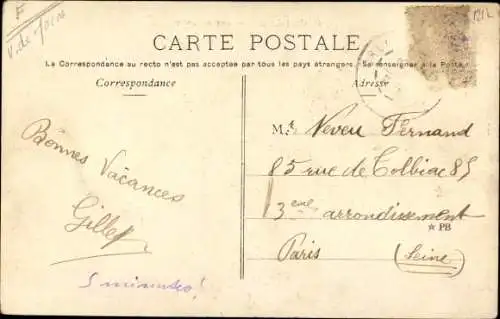 CARTE POSTALE
La Correspondance au recto n'est pas acceptée par tous les pays étrangers. Se renseigner à la Poste.
Correspondance
Adresse
Bonnes Vacances
Gillet
5 minutes!
Mr Neveu Fernand
85 rue de Tolbiac 85
3eme arrondissement
* PB
Paris (Seine)